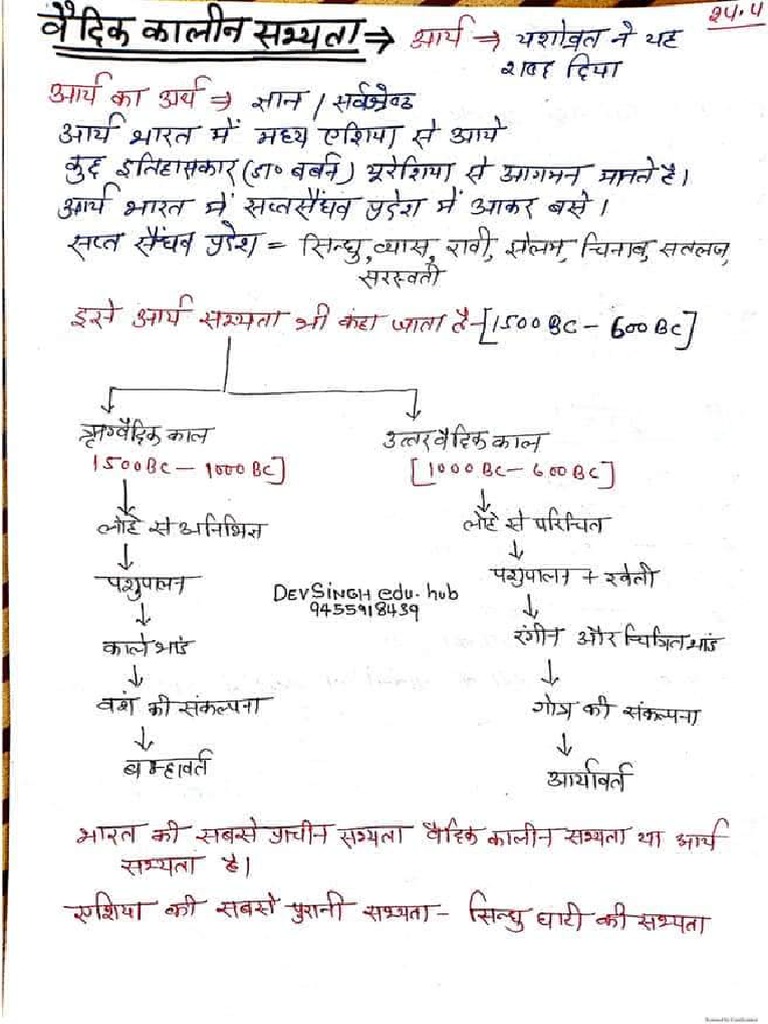 24.4
वैदिक कालीन सभ्यता ⇒ आर्य ⇒ यशोव्रत ने यह
शब्द दिया
आर्य का अर्थ ⇒ सान / सर्वश्रेष्ठ
आर्य भारत में मध्य एशिया से आये
कुछ इतिहासकार (डा० बर्बन) यूरेशिया से आगमन मानते है।
आर्य भारत में सप्तसैंघव प्रदेश में आकर बसे।
सप्त सैंघव प्रदेश = सिन्धु, व्यास, रावी, झेलम, चिनाब, सतलज,
सरस्वती
इसे आर्य सभ्यता भी कहा जाता है-[1500BC - 600BC]
ऋग्वैदिक काल
1500BC - 1000BC]
लोहे से अनिभिज्ञ
पशुपालन
काले भांड
वंश की संकल्पना
बम्हावर्त
उत्तरवैदिक काल
[1000BC - 600BC]
लोहे से परिचित
पशुपालन + खेती
रंगीन और चित्रित भांड
गोत्र की संकल्पना
आर्यावर्त
DEVSINGH edu. hub
9455918439
भारत की सबसे प्राचीन सभ्यता वैदिक कालीन सभ्यता या आर्य
सभ्यता है।
एशिया की सबसे पुरानी सभ्यता - सिन्धु घाटी की सभ्यता